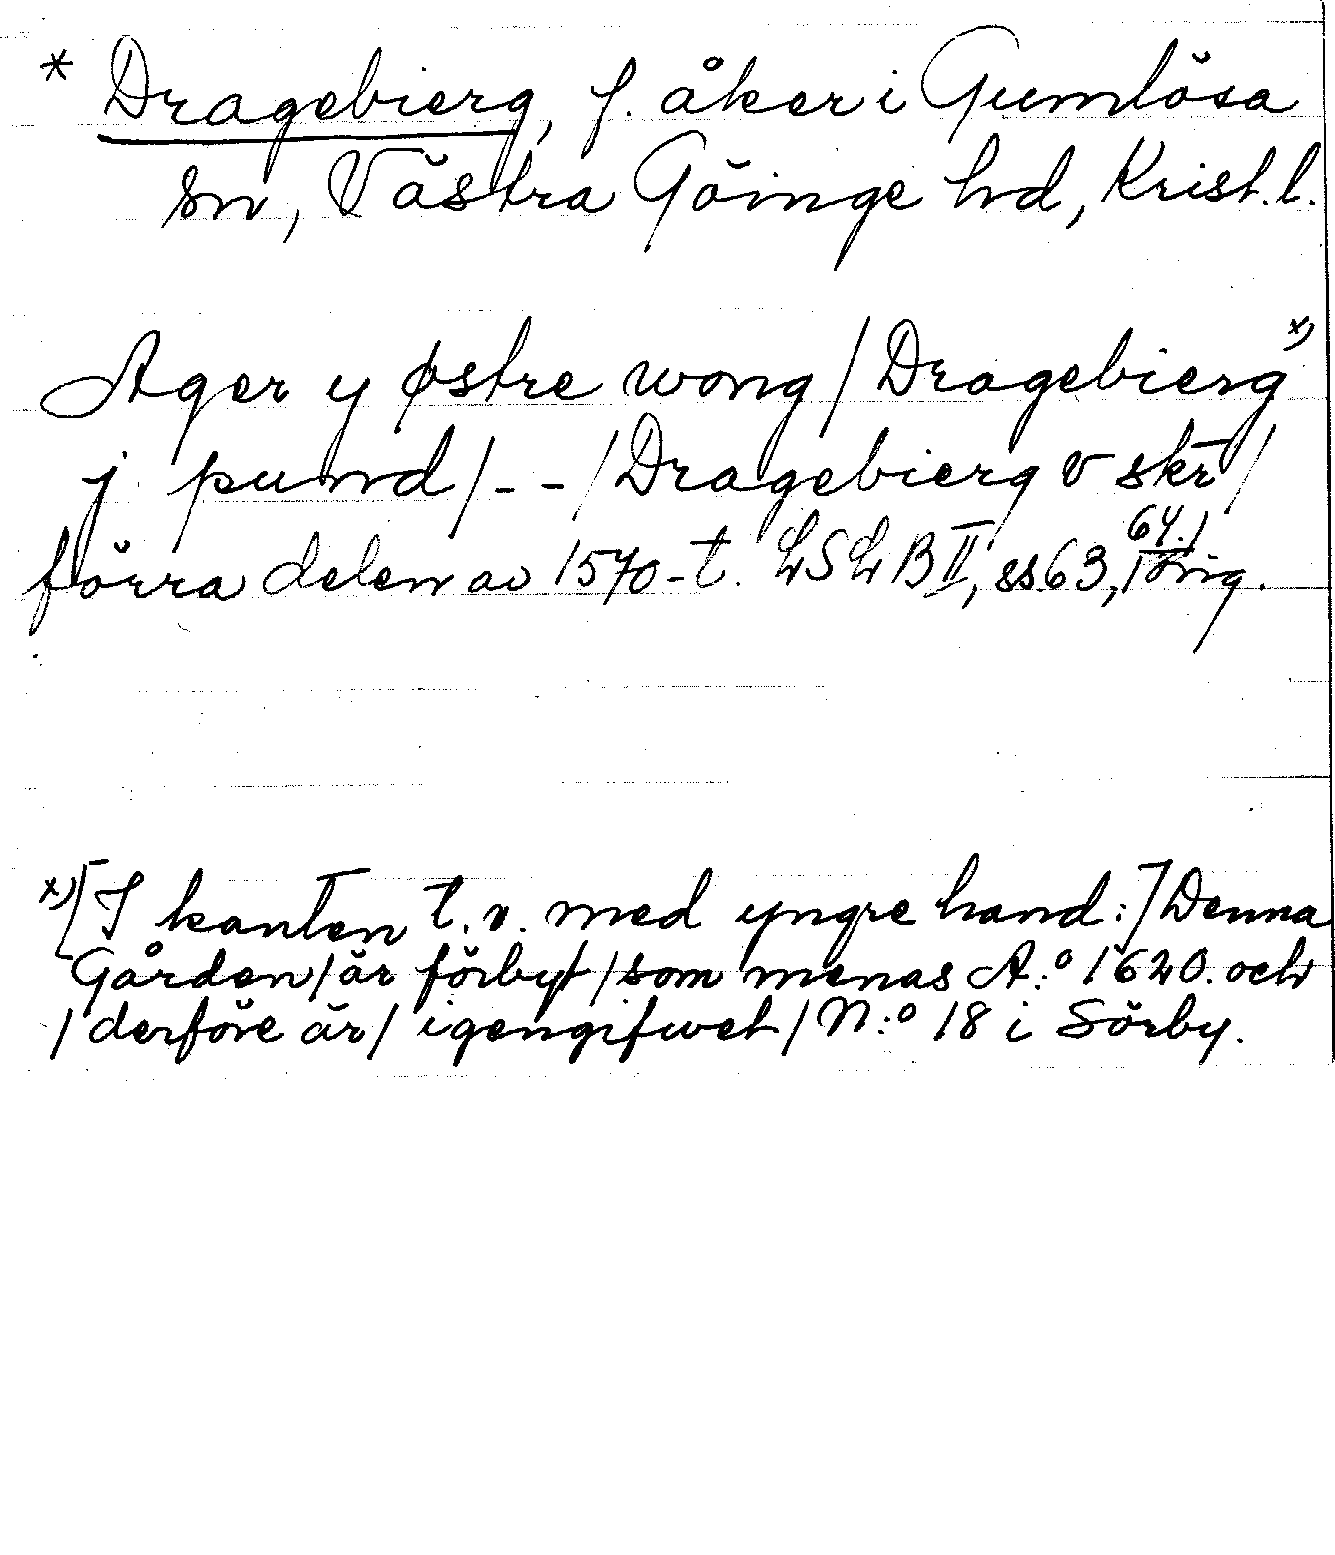 * Dragebierg, f. åker i Gumlösa
sn, Västra Göinge hd, Krist. l.
Ager y østre wong / Dragebierg x)
j pund / - - / Dragebierg v skr /
förra delen av 1570-t. LSLB II, ss 63, 64. / orig.
x) [I kanten t. v. med yngre hand:] Denna
Gården / är förbyt / som menas A:o 1620. och
/ derföre är / igengifwet / N:o 18 i Sörby.